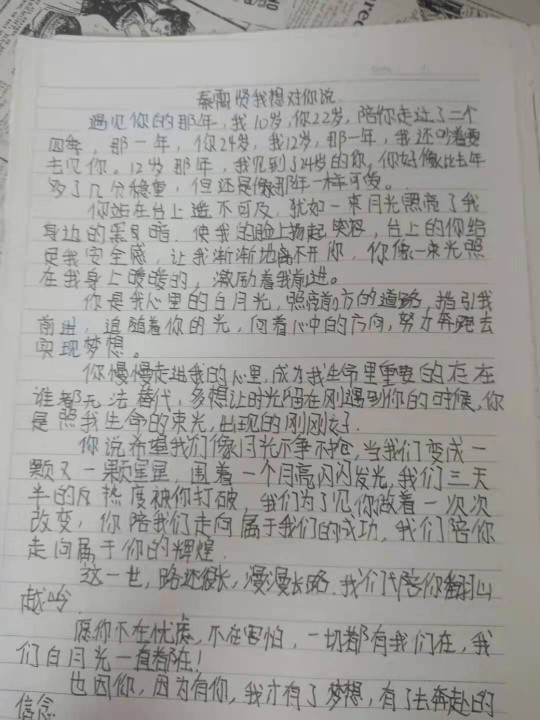 秦霄贤我想对你说
遇见你的那年,我10岁,你22岁,陪你走过了二个
四季,那一年,你24岁,我12岁,那一年,我还吵着要
去见你。12岁那年,我见到了24岁的你,你好像比去年
多了几分稳重,但还是像那年一样可爱。
你站在台上遥不可及,犹如一束月光照亮了我
身边的黑暗,使我的脸上扬起笑容,台上的你给
足我安全感,让我渐渐地离不开你,你像一束光照
在我身上暖暖的,激励着我前进。
你是我心里的白月光,照亮前方的道路,指引我
前进,追随着你的光,向着心中的方向,努力奔跑去
实现梦想。
你慢慢走进我的心里,成为我生命里重要的存在
谁都无法替代,多想让时光停在刚遇到你的时候,你
是照我生命的束光,出现的刚刚好.
你说希望我们像月光不争不抢,当我们变成一
颗又一颗星星,围着一个月亮闪闪发光,我们三天
半的热度被你打破,我们为了见你做着一次次
改变,你陪我们走向属于我们的成功,我们陪你
走向属于你的辉煌.
这一世,路还很长,漫漫长路,我们陪你翻山
越岭.
愿你不在忧虑,不在害怕,一切都有我们在,我
们白月光一直都在!
也因你,因为有你,我才有了梦想,有了去奔赴的
信念